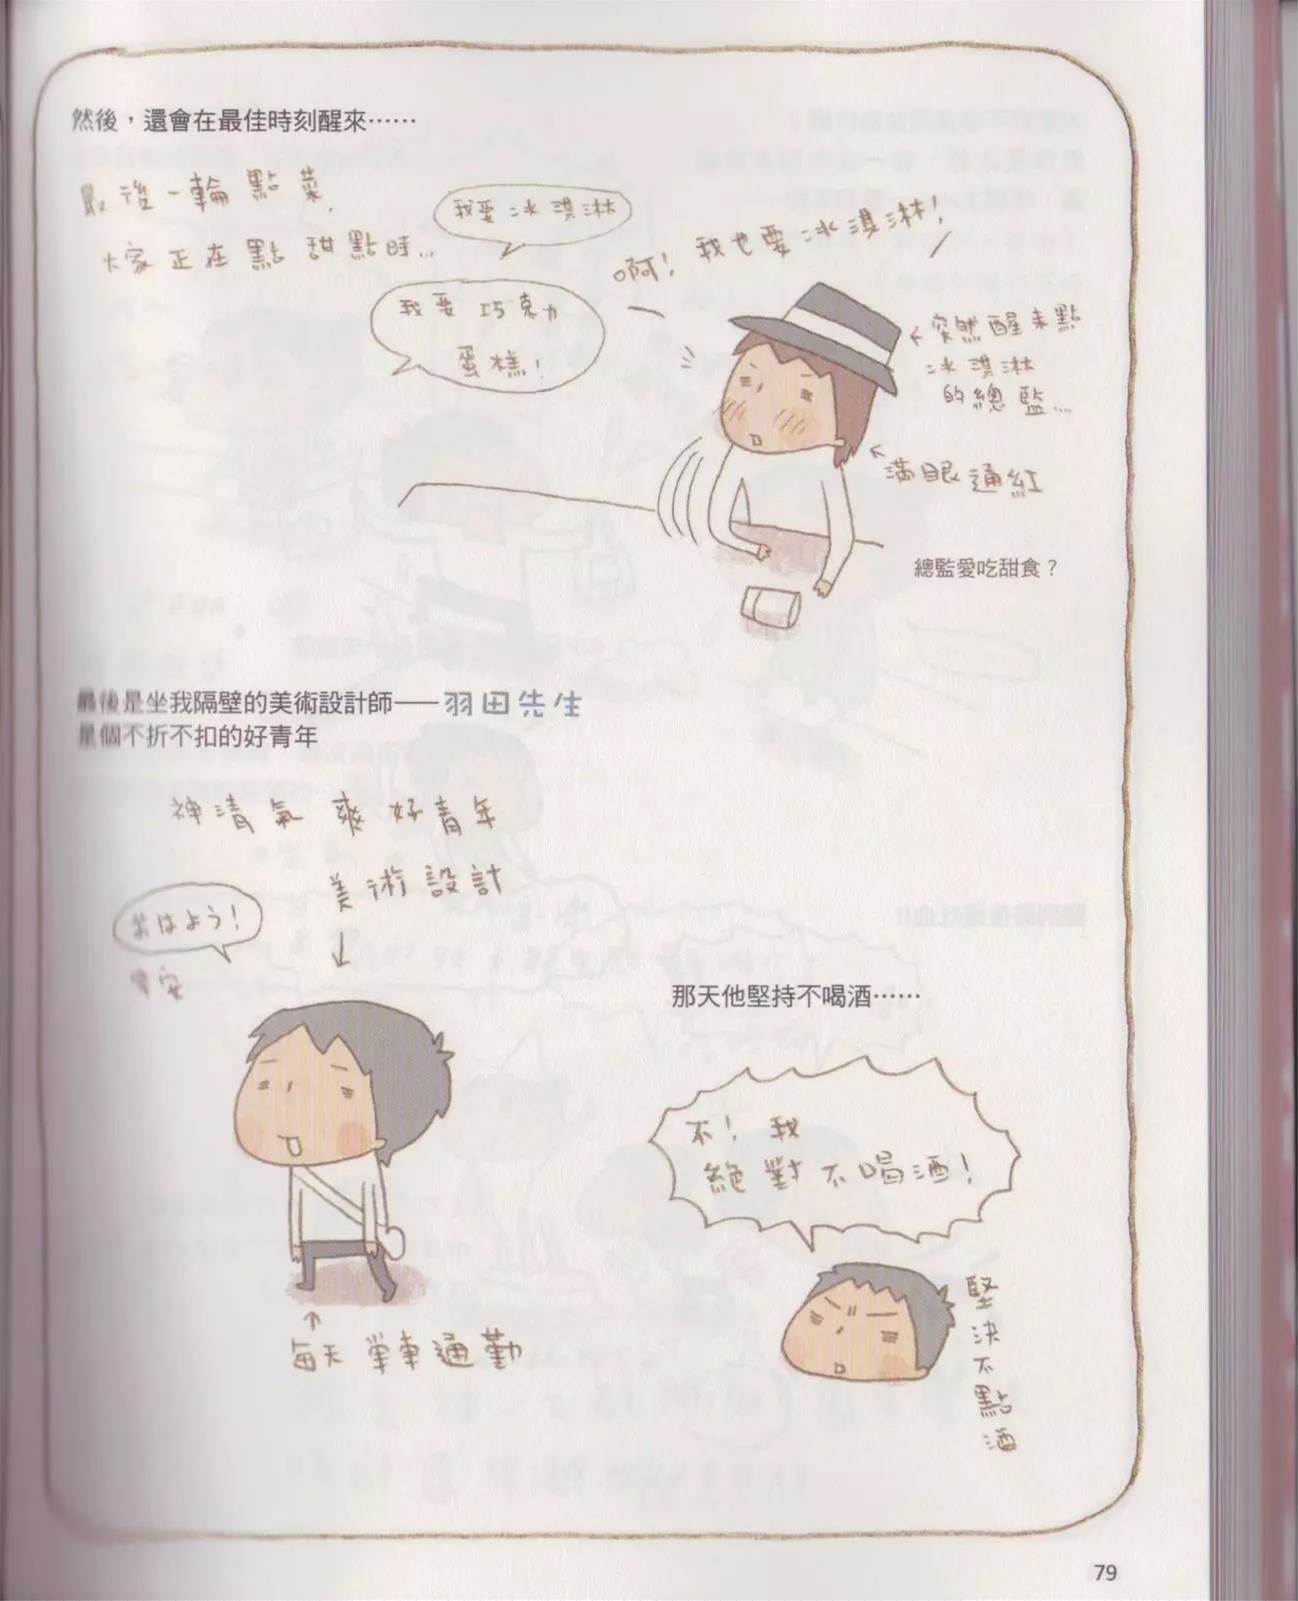 然後，還會在最佳時刻醒來⋯⋯
最後一輪點菜，
大家正在點甜點時…
我要冰淇淋
我要巧克力
蛋糕！
啊！我也要冰淇淋！
←突然醒來點
冰淇淋
的總監…
←滿眼通紅
總監愛吃甜食？
最後是坐我隔壁的美術設計師——羽田先生
是個不折不扣的好青年
神清氣爽好青年
美術設計
↓
おはよう！
早安
↑
每天單車通勤
那天他堅持不喝酒⋯⋯
不！我
絕對不喝酒！
堅決不點酒
79